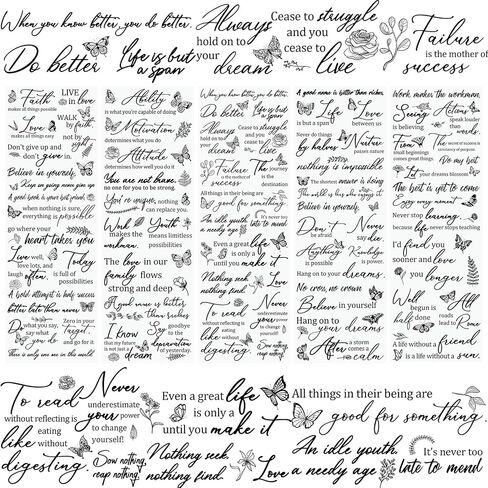 When you know better, you do better.
Do better
Life is but
a span
Always
hold on to
your
dream
Cease to struggle
and you
cease to
live
Failure
is the mother of
success
Faith
makes all things possible
LIVE
in love
Love
makes all things easy
WALK
by
faith
not by
sight
Don't give up and
don't give in.
Believe in yourself.
Keep on going never give up
A good book is your best friend.
when nothing is sure,
everything is possible
go where your
heart takes you
Live well,
love lots, and
laugh often.
Today
is full of
possibilities
A bold attempt is half success
better late than never
Do what you say,
say what you do
Zero in your
target,
and go for it
There is only one me in this world.
Ability
is what you're capable of doing
Motivation
determines what you do
Attitude
determines how well you do it
You are not brave,
no one for you to be strong.
You're unique,
nothing can replace you.
Wish
makes the woodman.
Youth
means limitless
possibilities
The love in our
family flows
strong and deep
A good name is better
than riches
I know
that my future
is not just a
dream
Say goodbye
to the
depravation
of yesterday.
When you know better, you do better.
Do better
Life is but
a span
Always
hold on to
your
dream
Cease to struggle
and you
cease to
live
Failure
is the mother of
success
The journey
is the
destination
All things in their being are
good for something
An idle youth,
a needy age
It's never too
late to mend
Even a great life
is only a
until you make it
Nothing seek,
nothing find.
Love
To read
without
reflecting is like
eating without
digesting.
Never
underestimate
your power to
change yourself!
Sow nothing,
reap nothing.
A good name is better than riches.
Life
is but a span
Love
lives between us
Never do things
by halves
Nurture
passes nature
nothing is impossible
The shortest answer is doing
Believe in yourself.
Don't be
afraid
Never
say die.
Anything
is possible
Knowledge
is power.
Hang on to your dreams.
No cross, no crown
Believe in yourself
Hang on to
your dreams
After
a storm
comes a
calm
Work makes the workman.
Seeing
is believing
Action
speak louder
than
words.
From small
beginnings
comes great things
The
secret of success is
constancy of purpose
Do my best
Let your dreams blossom
The best is yet to come
Enjoy every moment
Never stop learning,
because life
never stops teaching
I'd find you
sooner and love
you longer
Well
begun is
half
done
All
roads
lead to Rome
A life without a friend
is a life without a sun.
To read
without reflecting is
like eating
without
digesting.
Never
underestimate
your power
to change
yourself!
Sow nothing,
reap nothing.
Even a great life
is only a
until you make it
Nothing seek,
nothing find.
All things in their being are
good for something.
An idle youth,
a needy age
Love
It's never too
late to mend